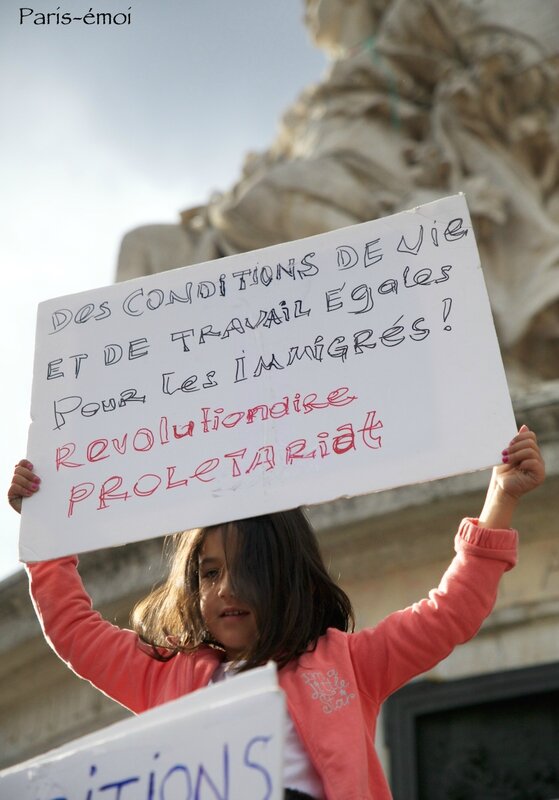 Paris-émoi
Des CONDITIONS DE Vie
ET DE TRAVAIL Égales
Pour les IMMIGRÉS!
Revolutionaire
PROLETARIat
DITIONS